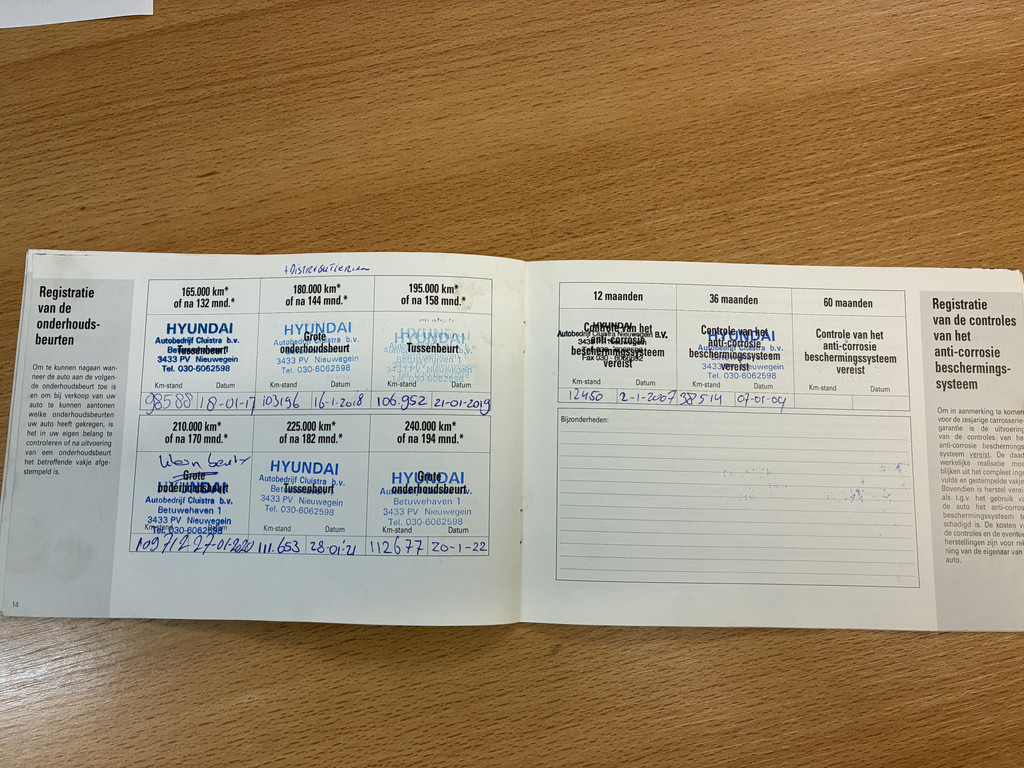 Registratie
van de
onderhouds-
beurten
Om te kunnen nagaan wan-
neer de auto aan de volgen-
de onderhoudsbeurt toe is
en om bij verkoop van uw
auto te kunnen aantonen
welke onderhoudsbeurten
uw auto heeft gekregen, is
het in uw eigen belang te
controleren of na uitvoering
van een onderhoudsbeurt
het betreffende vakje afge-
stempeld is.
14
+Distributieriem
165.000 km*
of na 132 mnd.*
HYUNDAI
Autobedrijf Cluistra b.v.
Tussenbeurt
3433 PV Nieuwegein
Tel. 030-6062598
Km-stand Datum
98588 18-01-17
180.000 km*
of na 144 mnd.*
HYUNDAI
Grote
onderhoudsbeurt
3433 PV Nieuwegein
Tel. 030-6062598
Km-stand Datum
103196 16-1-2018
195.000 km*
of na 158 mnd.*
HYUNDAI
Tussenbeurt
3433 PV Nieuwegein
Tel. 030-6062598
Km-stand Datum
106.952 21-01-2019
210.000 km*
of na 170 mnd.*
Klein beurt
Grote
onderhoudsbeurt
HYUNDAI
Autobedrijf Cluistra b.v.
Betuwehaven 1
3433 PV Nieuwegein
Tel. 030-6062598
Km-stand Datum
27-01-2020
225.000 km*
of na 182 mnd.*
HYUNDAI
Autobedrijf Cluistra b.v.
Tussenbeurt
Betuwehaven 1
3433 PV Nieuwegein
Tel. 030-6062598
Km-stand Datum
111.653 28-01-21
240.000 km*
of na 194 mnd.*
HYUNDAI
Grote
onderhoudsbeurt
Betuwehaven 1
3433 PV Nieuwegein
Tel. 030-6062598
Km-stand Datum
112677 20-1-22
12 maanden
Controle van het
anti-corrosie
beschermingssysteem
vereist
HYUNDAI
Autobedrijf Cluistra Nieuwegein B.V.
Km-stand Datum
12450 2-1-2007
36 maanden
Controle van het
anti-corrosie
beschermingssysteem
vereist
HYUNDAI
Tel. 030-6062598
Km-stand Datum
38514 07-01-09
60 maanden
Controle van het
anti-corrosie
beschermingssysteem
vereist
Km-stand Datum
Bijzonderheden:
Registratie
van de controles
van het
anti-corrosie
beschermings-
systeem
Om in aanmerking te komen
voor de zesjarige carrosserie-
garantie is de uitvoering
van de controles van het
anti-corrosie beschermings-
systeem vereist. De daad-
werkelijke realisatie moet
blijken uit het compleet inge-
vulde en gestempelde vakje.
Bovendien is herstel vereist
als t.g.v. het gebruik van
de auto het anti-corrosie
beschermingssysteem be-
schadigd is. De kosten van
de controles en de eventuele
herstellingen zijn voor reke-
ning van de eigenaar van de
auto.